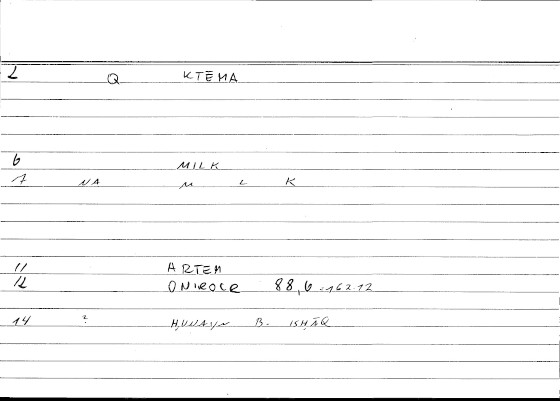 2 Q KTĒMA
6 MILK
7 NA M L K
11 ARTEM
12 ONIROCR 88,6 = 162.12
14 ? ḤUNAYN B. ISḤĀQ